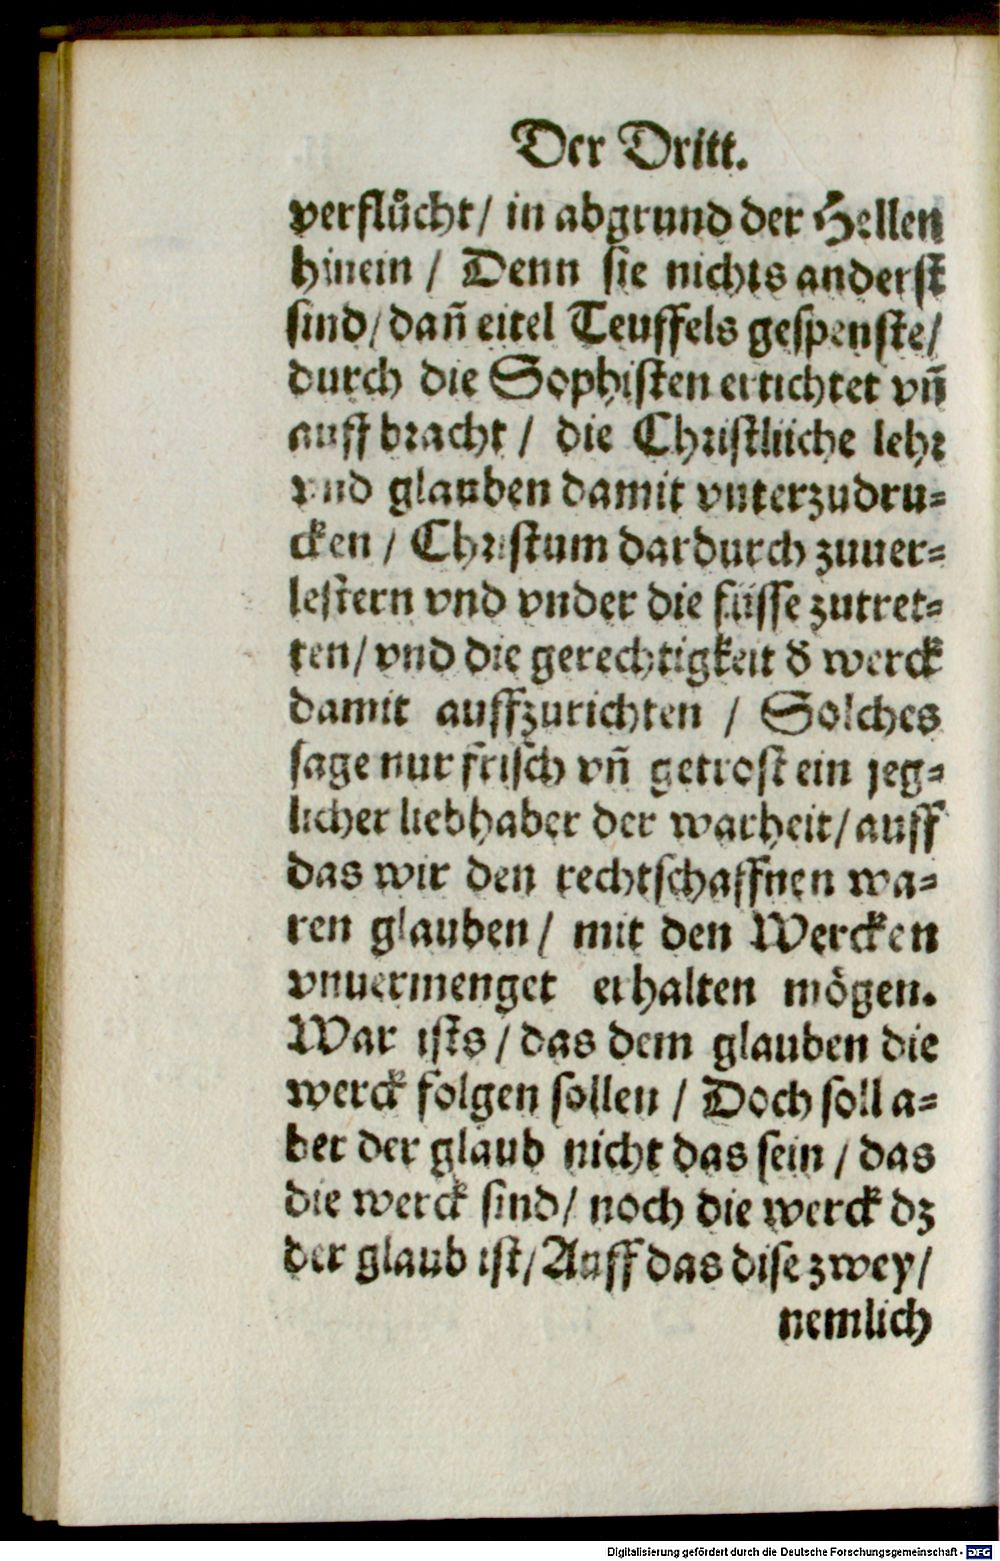 Der Dritt.
verflůcht / in abgrund der Hellen
hinein / Denn sie nichts anderst
sind / dañ eitel Teuffels gespenste /
durch die Sophisten ertichtet vñ
auff bracht / die Christliche lehr
vnd glauben damit vnterzudru=
cken / Christum dardurch zuuer=
lestern vnd vnder die füsse zutret=
ten / vnd die gerechtigkeit d̕ werck
damit auffzurichten / Solches
sage nur frisch vñ getrost ein jeg=
licher liebhaber der warheit / auff
das wir den rechtschaffnen wa=
ren glauben / mit den Wercken
vnuermenget erhalten mögen.
War ists / das dem glauben die
werck folgen sollen / Doch soll a=
ber der glaub nicht das sein / das
die werck sind / noch die werck dz
der glaub ist / Auff das dise zwey /
nemlich
Digitalisierung gefördert durch die Deutsche Forschungsgemeinschaft - DFG